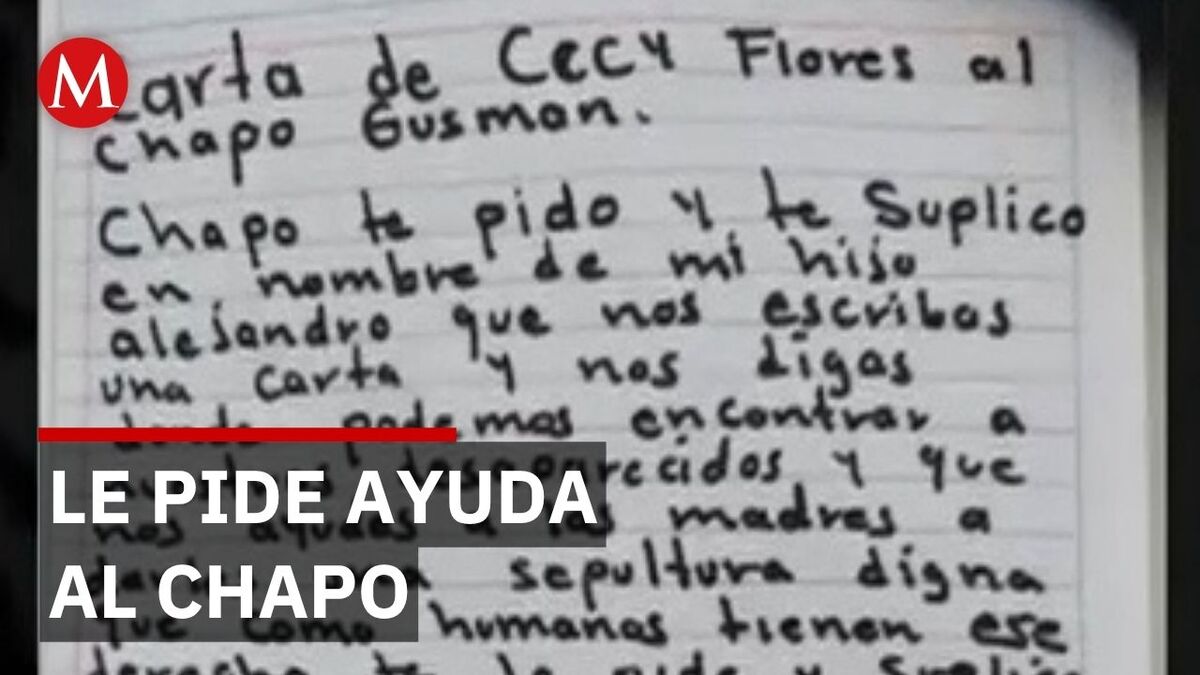 M
Carta de Cecy Flores al
Chapo Gusmon.
Chapo te pido y te Suplico
en nombre de mi hijo
alejandro que nos escribas
una carta y nos digas
donde podemos encontrar a
desaparecidos y que
nos ayudes a las madres a
sepultura digna
que como humanos tienen ese
derecho te lo pide y Suplico
LE PIDE AYUDA
AL CHAPO